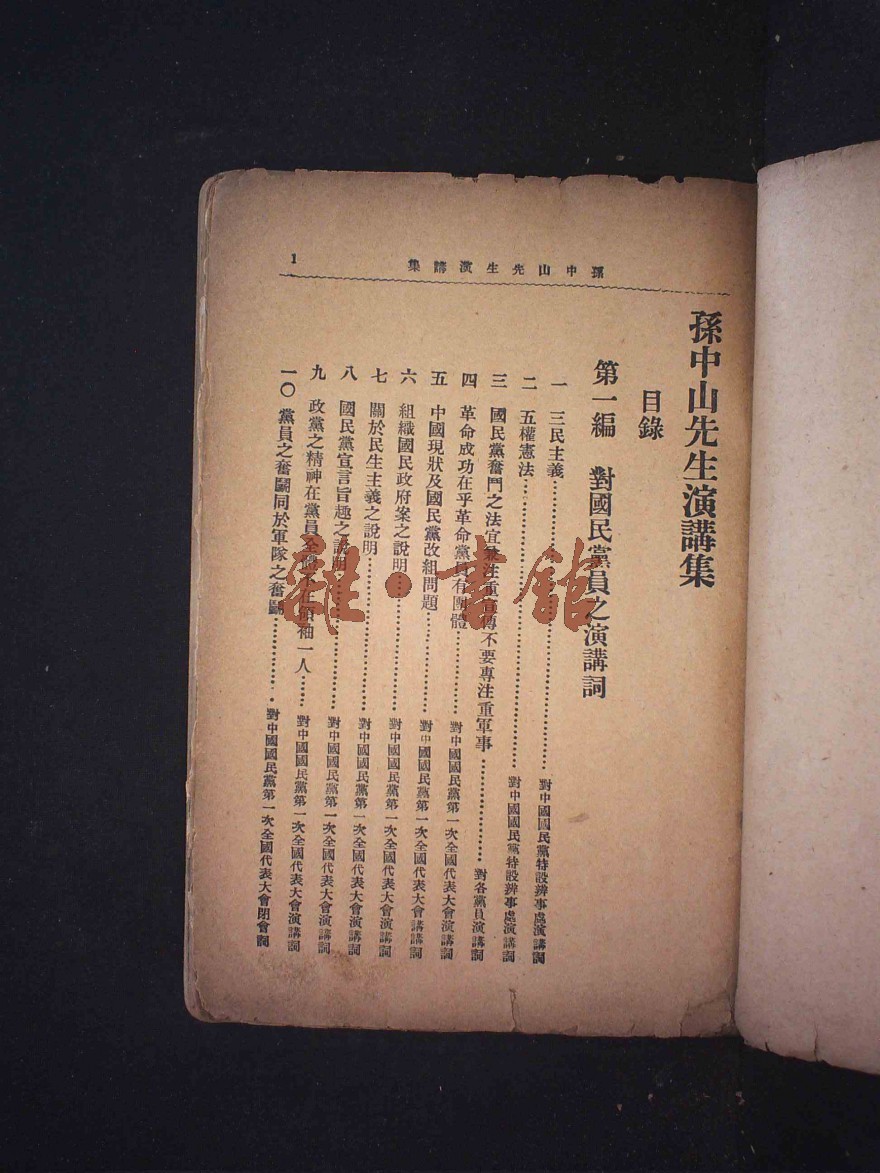 孫中山先生演講集
1
孫中山先生演講集
目錄
第一編 對國民黨員之演講詞
一 三民主義……對中國國民黨特設辨事處演講詞
二 五權憲法……對中國國民黨特設辨事處演講詞
三 國民黨奮鬥之法宜兼注重宣傳不要專注重軍事……對各黨員演講詞
四 革命成功在乎革命黨員有團體……對中國國民黨第一次全國代表大會演講詞
五 中國現狀及國民黨改組問題……對中國國民黨第一次全國代表大會講詞
六 組織國民政府案之說明……對中國國民黨第一次全國代表大會演講詞
七 關於民生主義之說明……對中國國民黨第一次全國代表大會演講詞
八 國民黨宣言旨趣之說明……對中國國民黨第一次全國代表大會演講詞
九 政黨之精神在黨員全體不在領袖一人……對中國國民黨第一次全國代表大會演講詞
一〇 黨員之奮鬭同於軍隊之奮鬭……對中國國民黨第一次全國代表大會閉會詞
雜·書館